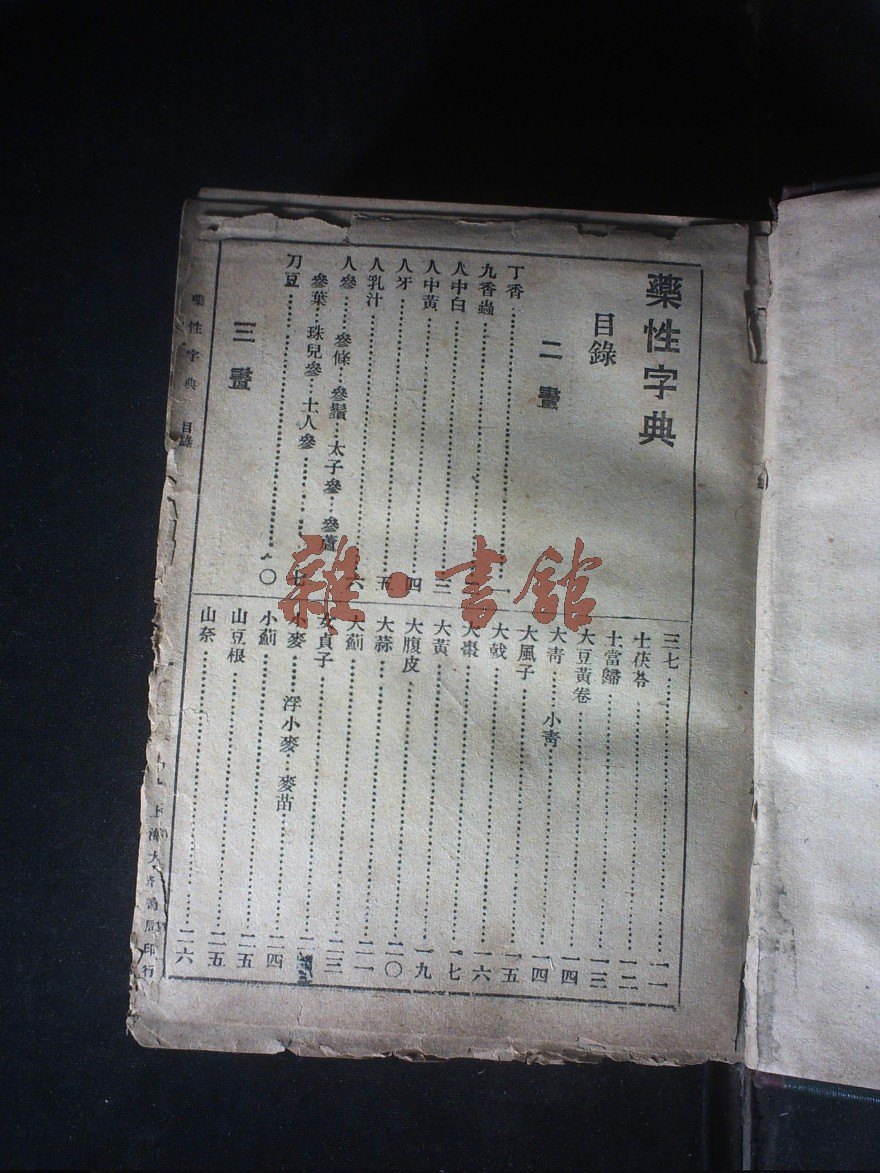 藥性字典
目錄
二畫
丁香……一
九香蟲
人中白
人中黃……三
人牙……四
人乳汁……五
人參……參條…參鬚…太子參…參蘆……六
參葉…珠兒參…土人參……七
刀豆……一〇
三畫
三七……一一
土茯苓……一二
土當歸……一三
大豆黃卷……一四
大青……小青……一四
大風子……一五
大戟……一六
大棗……一七
大黃……一九
大腹皮……二〇
大蒜……二一
大薊
女貞子……二三
小麥……浮小麥…麥苗
小薊……二四
山豆根……二五
山奈……二六
藥性字典 目錄
上海大 書局印行
雜·書館